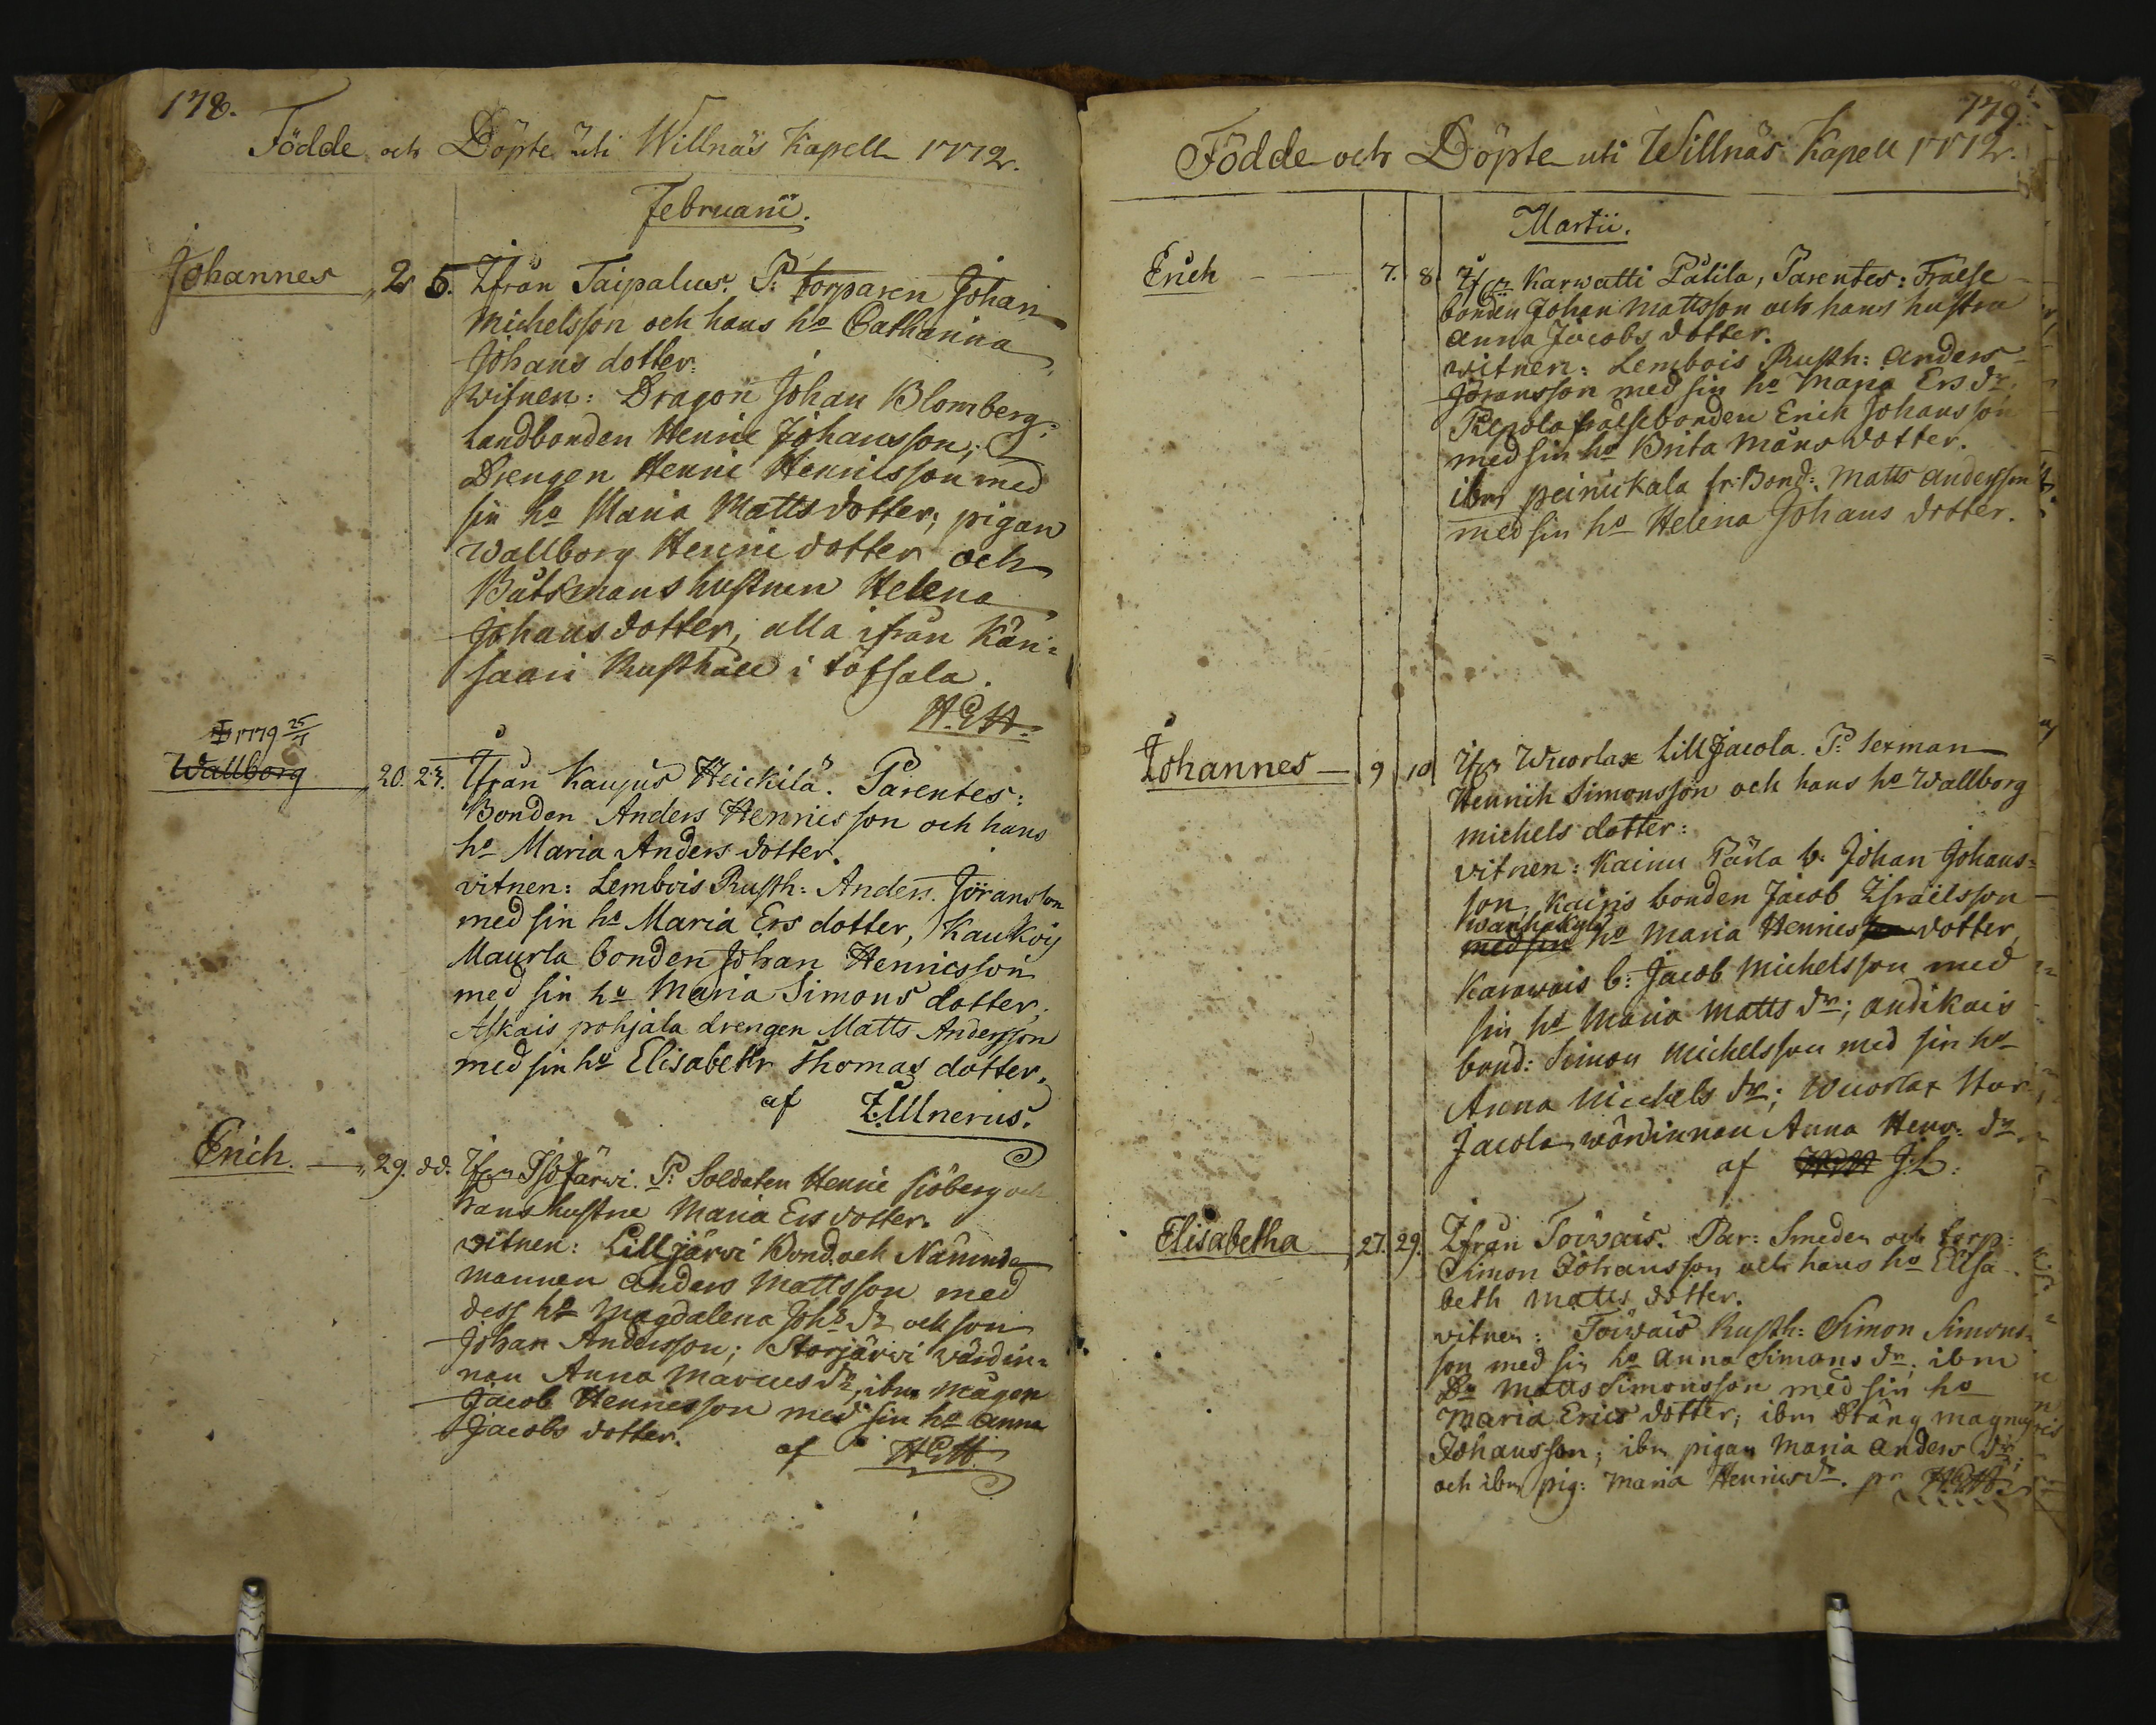 178.
Födde och Döpte uti Willnäs Kapell 1772.
Februarii.
Johannes 2 5. Ifrån Taipalus. P: torparen Johan
Michelsson och hans ho Catharina
Johans dotter.
witnen: Dragon Johan Blomberg;
Landbonden Henric Johansson;
Drengen Henric Henricsson med
sin ho Maria Matts dotter, pigan
Wallborg Henric dotter och
Båtsmans hustrun Helena
Johans dotter, alla ifrån Kan-
saari Rusthåll i töfsala.
H.E.H.
1779 25/7
Wallborg 20. 23. Ifrån Kaujus Heickilä. Parentes:
Bonden Anders Henricsson och hans
ho Maria Anders dotter.
vitnen: Lembois Rusth: Anders Jöransson
med sin ho Maria Ers dotter, Kaukois
Maurla bonden Johan Henricsson
med sin ho Maria Simons dotter,
Askais pohjala drengen Matts Andersson
med sin ho Elisabeth Thomas dotter.
af Z. Ulnerus.
Erich. 29. dd. P: Soldaten Henric Siöberg och
hans hustru Maria Ers dotter.
vitnen: Lilljärvi Bond. och Nämnde
mannen Anders Mattsson med
dess ho Magdalena Johs dr och son
Johan Andersson; Storjärwi wärdin-
nan Anna Marcus dr, ibm mågen
Jacob Henricsson med sin ho Anna
Jacobs dotter. af H.E.H.
179.
Födde och Döpte uti Willnäs Kapell 1772.
Martii.
Erich 7. 8. Ifrn Karwatti Patila, Parentes: Frälse
bonden Johan Mattsson och hans hustru
Anna Jacobs dotter.
witnen: Lembois Rusth: Anders
Jöransson med sin ho Maria Ers dr.
frälsebonden Erich Johansson
med sin ho Brita Måns dotter.
ibm peinickala fr: Bond: Matts Andersson
med sin ho Helena Johans dotter.
Johannes 9 10 Ifrn Wuorlax Lill Jacola. P: Sexman
Henrich Simonsson och hans ho Wallborg
Michels dotter:
vitnen: Kainu Pärla b. Johan Johans-
son, Kairis bonden Jacob Israelsson
med sin ho Maria Henrics dotter,
Karawais b: Jacob Michelsson med
sin ho Maria Matts dr; andikais
bond: Simon Michelsson med sin ho
Anna Michels dr; Wuorlax Stor
Jacola wärdinnan Anna Henr: dr.
af J.L.
Elisabetha 27. 29. Ifrån Toiwais. Par: Smeden och torp:
Simon Johansson och hans ho Elisa-
beth Matts dotter.
vitnen: Toiwais Rusth: Simon Simons-
son med sin ho Anna Simons dr. ibm
Do Matts Simonsson med sin ho
Maria Erics dotter; ibm Dräng Magnus
Johansson; ibm pigan Maria Anders dr;
och ibm pig: Maria Henricsdr. pr H.E.H.